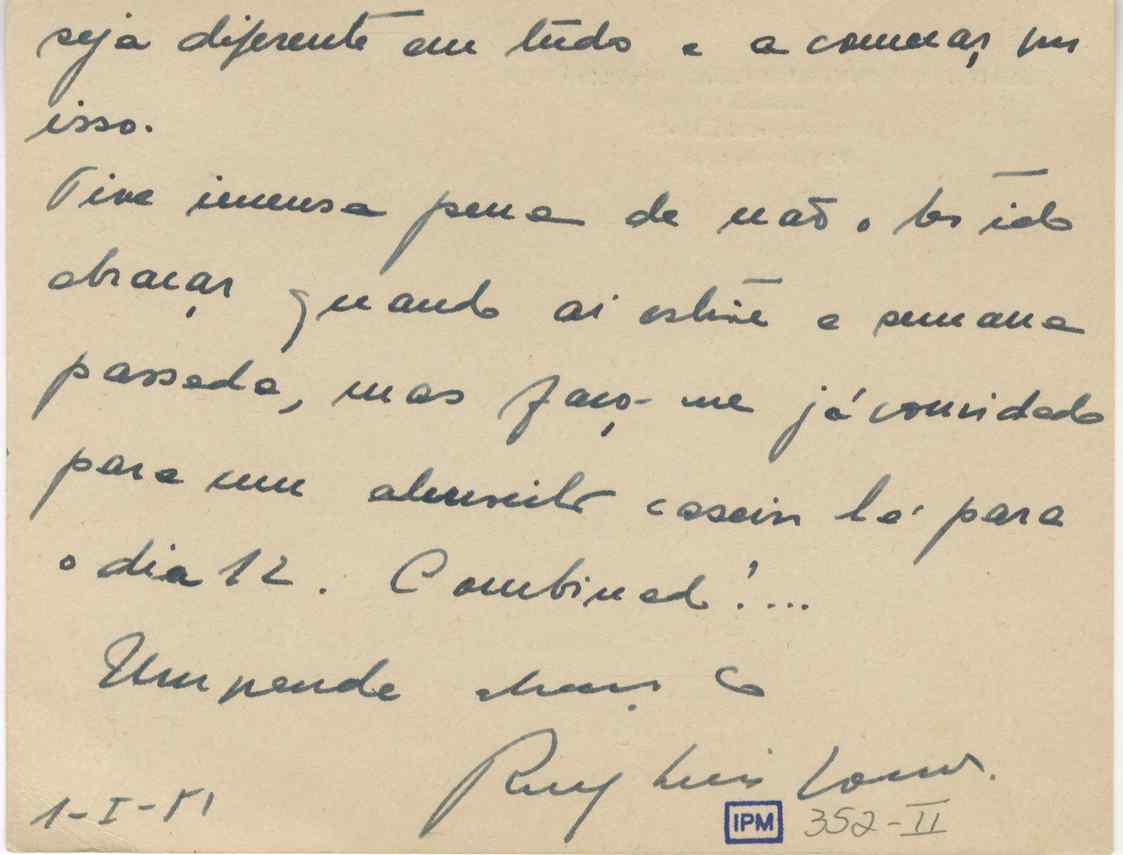 seja diferente em tudo e a começar por
isso.
Tive imensa pena de não o ter ido
abraçar quando aí estive a semana
passada, mas faço-me já convidado
para um almocito caseiro lá para
o dia 12. Combinado!...
Um grande abraço
Ruy Luis Gomes.
1-I-51
IPM 352-II